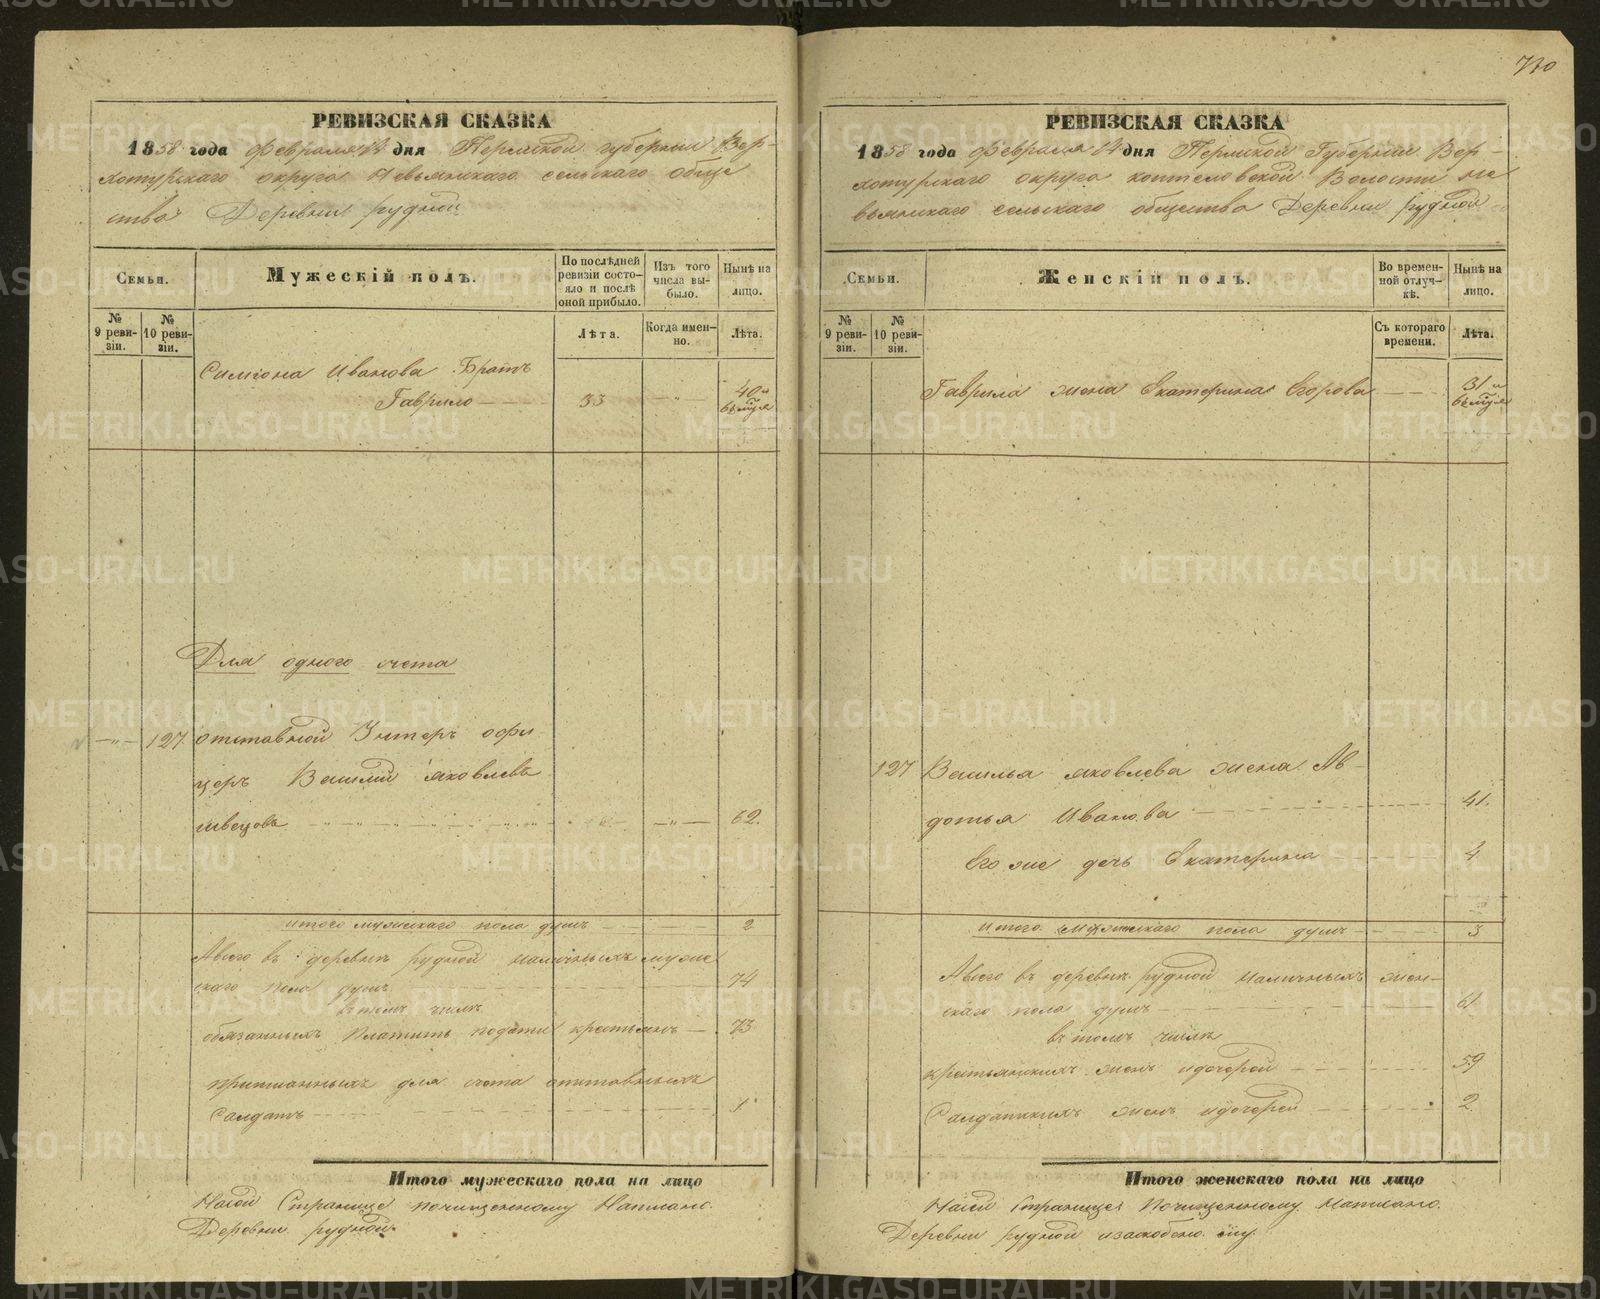 710
РЕВИЗСКАЯ СКАЗКА
1858 года Февраля 14 дня Пермской губернии Вер-
хотурскаго округа Невьянскаго сельскаго обще
ства Деревни рудной
Семьи.
Мужескій полъ.
По послѣдней ревизіи состояло и послѣ оной прибыло.
Изъ того числа выбыло.
Нынѣ на лицо.
№ 9 ревизіи.
№ 10 ревизіи.
Лѣта.
Когда именно.
Лѣта.
Симіона Иванова Братъ
Гаврило 33 40
Для одного счета
127. отставной Унтеръ офи
церъ Василій Яковлевъ
швецовъ 62.
итого мужескаго пола душъ 2
А всего въ деревнѣ рудной наличныхъ муже
скаго пола душъ 74
въ томъ числѣ
обязанныхъ платить подати крестьянъ 73
приписанныхъ для счета отставныхъ
Солдатъ 1.
Итого мужескаго пола на лицо
На сей Странице по чищенному Написано.
Деревни рудной.
РЕВИЗСКАЯ СКАЗКА
1858 года Февраля 14 дня Пермской Губернии Вер-
хотурскаго округа коптеловской Волости не
вьянскаго сельскаго общества Деревни рудной
Семьи.
Женскій полъ.
Во временной отлучкѣ.
Нынѣ на лицо.
№ 9 ревизіи.
№ 10 ревизіи.
Съ котораго времени.
Лѣта.
Гаврила жена Екатерина Егорова 31
127 Василья яковлева жена Ав-
дотья Иванова 41.
Его же дочь Екатерина 4
итого женскаго пола душъ 3
А всего въ деревнѣ рудной наличныхъ жен-
скаго пола душъ 61
въ томъ числѣ
крестьянскихъ женъ и дочерей 59
Солдатскихъ женъ и дочерей 2
Итого женскаго пола на лицо
На сей странице по чищенному Написано.
Деревни рудной
METRIKI.GASO-URAL.RU